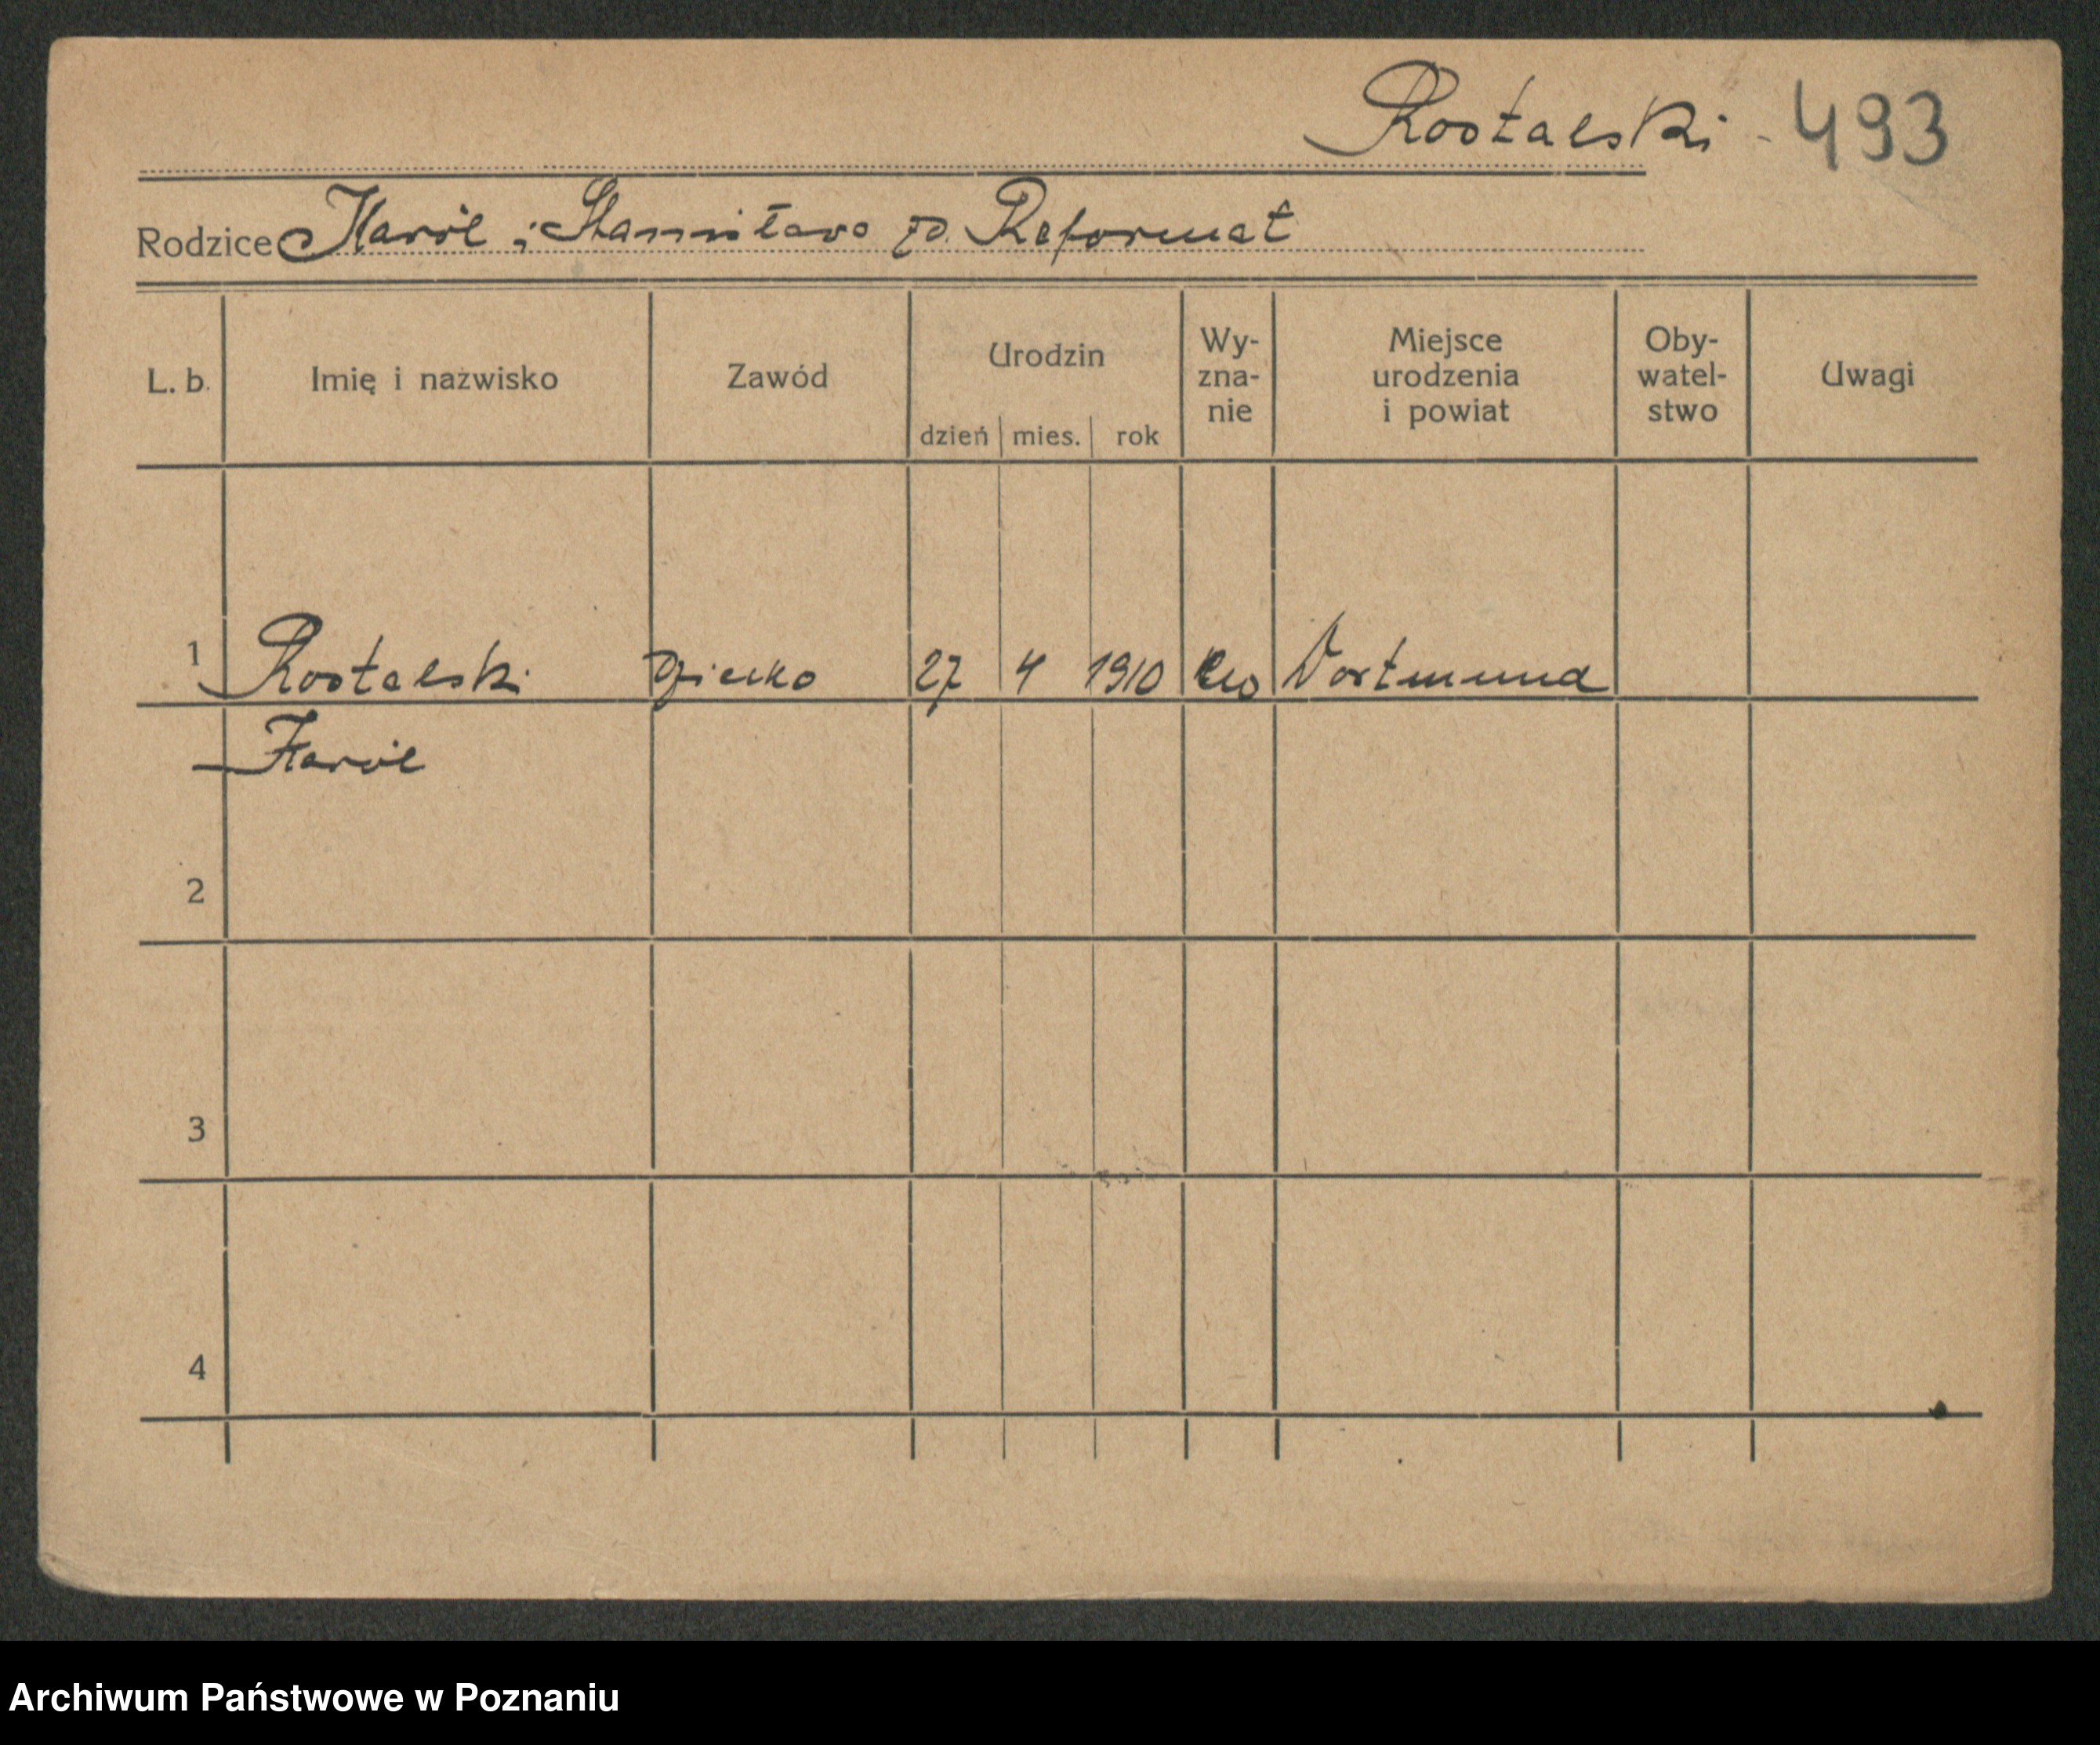 Rostalski - 493
Rodzice Karól i Stanisława zd. Reformat
L. b. Imię i nazwisko Zawód Urodzin dzień mies. rok Wy-zna-nie Miejsce urodzenia i powiat Oby-watel-stwo Uwagi
1 Rostalski Dziecko 27 4 1910 Dortmund
Karól
2
3
4
Archiwum Państwowe w Poznaniu